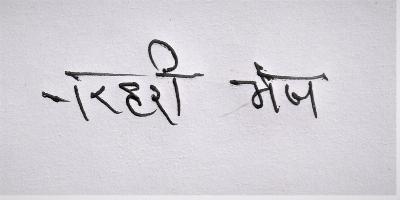 नरहरी मेज